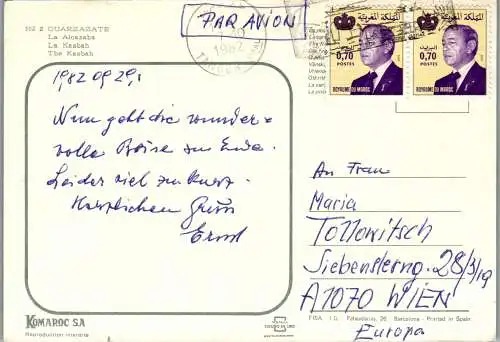 152 2 OUARZAZATE
La Alcazaba
La Kasbah
The Kasbah
PAR AVION
1982
TANGER
المملكة المغربية
0,70
POSTES
ROYAUME DU MAROC
المملكة المغربية
0,70
POSTES
ROYAUME DU MAROC
1982 09 29,
Nun geht die wunder=
volle Reise zu Ende.
Leider viel zu kurz.
Herzlichen Gruß
Ernst
An Frau
Maria
Tollowitsch
Siebensterng. 28/3/19
A1070 WIEN
Europa
KOMAROC S.A
Reproduction interdite
FISA I.G. Palaudarias, 26 - Barcelona - Printed in Spain